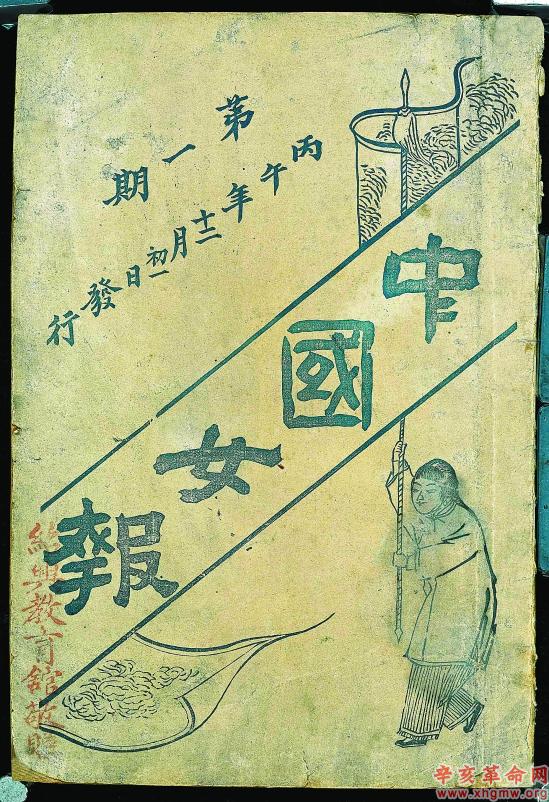 第一期
丙午年十二月初一日發行
中國女報
紹興教育館敬贈
辛亥革命网
www.xhgmw.org